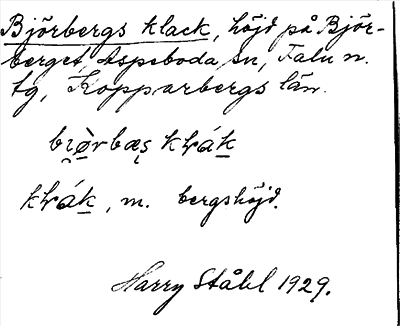 Björbergs klack, höjd på Björ-
berget, Aspeboda sn, Falu n.
tg, Kopparbergs län.
klák, m. bergshöjd.
Harry Ståhl 1929.